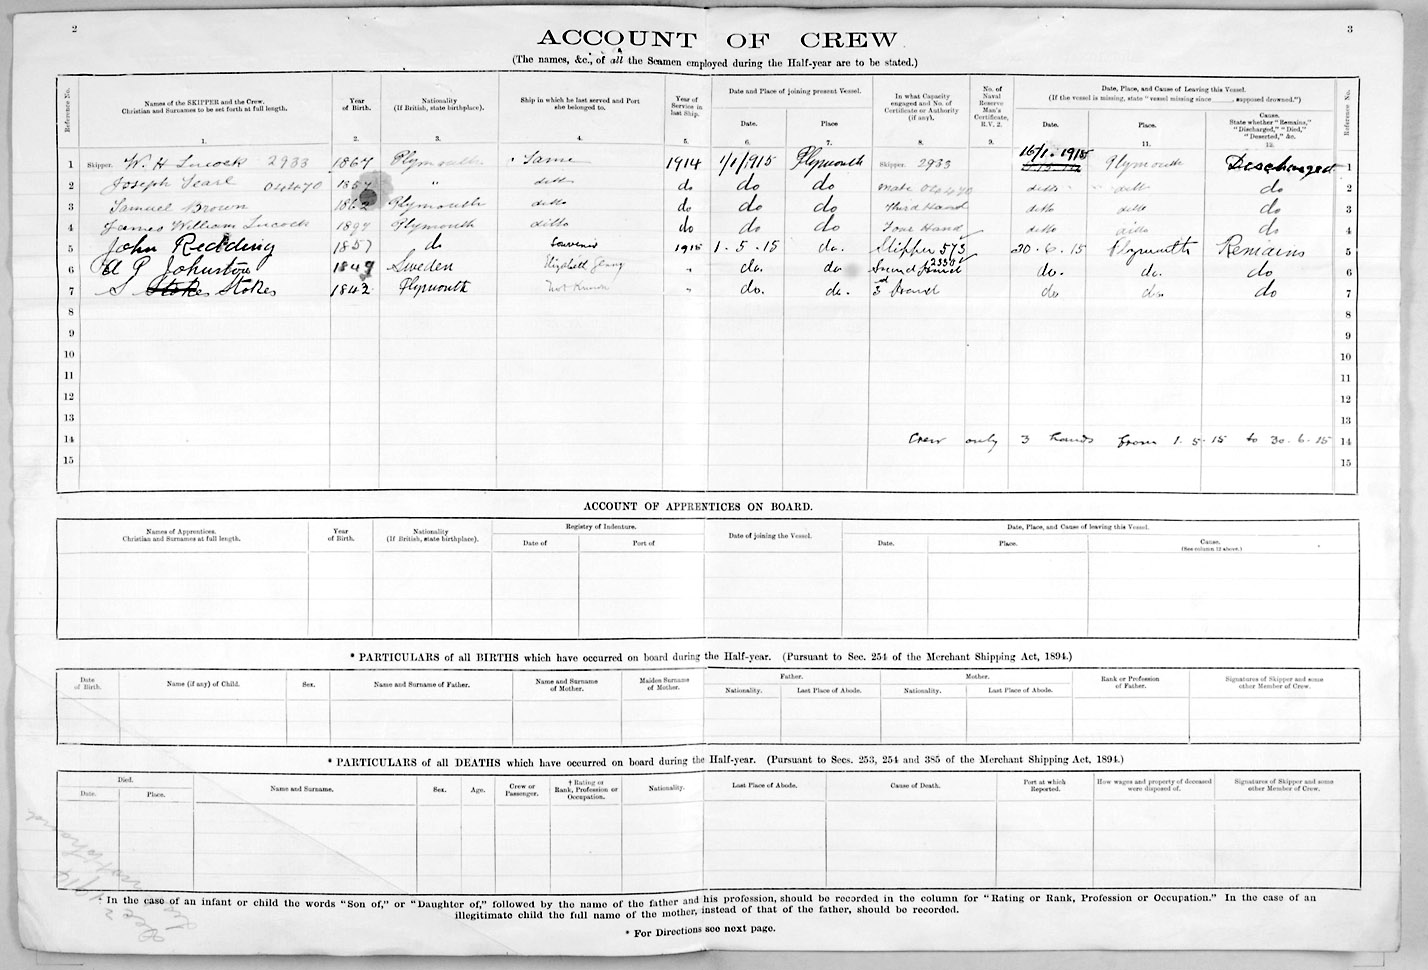 2
3
ACCOUNT OF CREW
(The names, &c., of all the Seamen employed during the Half-year are to be stated.)
Reference No.
Names of the SKIPPER and the Crew.
Christian and Surnames to be set forth at full length.
1.
Year
of Birth.
2.
Nationality
(If British, state birthplace).
3.
Ship in which he last served and Port
she belonged to.
4.
Year of
Service in
last Ship.
5.
Date and Place of joining present Vessel.
Date.
6.
Place
7.
In what Capacity
engaged and No. of
Certificate or Authority
(if any).
8.
No. of
Naval
Reserve
Man's
Certificate,
R.V. 2.
9.
Date, Place, and Cause of Leaving this Vessel.
(If the vessel is missing, state "vessel missing since , supposed drowned.")
Date.
10.
Place.
11.
Cause.
State whether "Remains,"
"Discharged," "Died,"
"Deserted," &c.
12.
Reference No.
1 Skipper. W. H Lucock 2933 1867 Plymouth Same 1914 1/1/915 Plymouth Skipper. 2933 16/1.1915 Plymouth Discharged 1
2 Joseph Searl 04470 1857 " ditto do do do Mate 04470 ditto ditto do 2
3 Samuel Brown 1862 Plymouth ditto do do do Third Hand ditto ditto do 3
4 James William Lucock 1897 Plymouth ditto do do do Four Hand ditto ditto do 4
5 John Redding 1857 do Souvenir 1915 1-5-15 do. Skipper 573 30-6-15 Plymouth Remains 5
6 A P Johnstone 1849 Sweden Elizabeth Jenny " do. do do. do. do 6
7 S Stokes 1842 Plymouth Not Known " do. do. 3rd Hand do do. do 7
8 8
9 9
10 10
11 11
12 12
13 13
14 Crew only 3 hands from 1-5-15 to 30-6-15 14
15 15
ACCOUNT OF APPRENTICES ON BOARD.
Names of Apprentices.
Christian and Surnames at full length.
Year
of Birth.
Nationality
(If British, state birthplace).
Registry of Indenture.
Date of
Port of
Date of joining the Vessel.
Date, Place, and Cause of leaving this Vessel.
Date.
Place.
Cause.
(See column 12 above.)
* PARTICULARS of all BIRTHS which have occurred on board during the Half-year. (Pursuant to Sec. 254 of the Merchant Shipping Act, 1894.)
Date
of Birth.
Name (if any) of Child.
Sex.
Name and Surname of Father.
Name and Surname
of Mother.
Maiden Surname
of Mother.
Father.
Nationality.
Last Place of Abode.
Mother.
Nationality.
Last Place of Abode.
Rank or Profession
of Father.
Signatures of Skipper and some
other Member of Crew.
* PARTICULARS of all DEATHS which have occurred on board during the Half-year. (Pursuant to Secs. 253, 254 and 385 of the Merchant Shipping Act, 1894.)
Died.
Date.
Place.
Name and Surname.
Sex.
Age.
Crew or
Passenger.
† Rating or
Rank, Profession or
Occupation.
Nationality.
Last Place of Abode.
Cause of Death.
Port at which
Reported.
How wages and property of deceased
were disposed of.
Signatures of Skipper and some
other Member of Crew.
In the case of an infant or child the words "Son of," or "Daughter of," followed by the name of the father and his profession, should be recorded in the column for "Rating or Rank, Profession or Occupation." In the case of an
illegitimate child the full name of the mother, instead of that of the father, should be recorded.
* For Directions see next page.